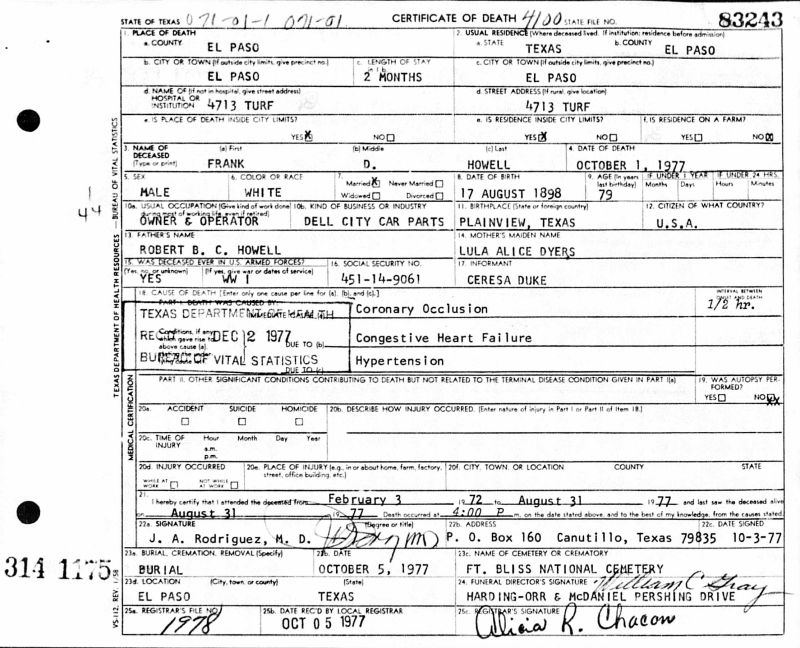 STATE OF TEXAS 071-01-1 071-01 CERTIFICATE OF DEATH 4100 STATE FILE NO. 83243
1. PLACE OF DEATH 2. USUAL RESIDENCE (Where deceased lived. If institution: residence before admission)
a. COUNTY EL PASO a. STATE TEXAS b. COUNTY EL PASO
b. CITY OR TOWN (If outside city limits, give precinct no.) c. LENGTH OF STAY in 1 b. c. CITY OR TOWN (If outside city limits, give precinct no.)
EL PASO 2 MONTHS EL PASO
d. NAME OF (If not in hospital, give street address) HOSPITAL OR INSTITUTION d. STREET ADDRESS (If rural, give location)
4713 TURF 4713 TURF
e. IS PLACE OF DEATH INSIDE CITY LIMITS? e. IS RESIDENCE INSIDE CITY LIMITS? f. IS RESIDENCE ON A FARM?
YES X NO YES X NO YES NO X
3. NAME OF DECEASED (Type or print) (a) First (b) Middle (c) Last 4. DATE OF DEATH
FRANK D. HOWELL OCTOBER 1, 1977
5. SEX 6. COLOR OR RACE 7. Married X Never Married Widowed Divorced 8. DATE OF BIRTH 9. AGE (In years last birthday) IF UNDER 1 YEAR Months Days IF UNDER 24 HRS. Hours Minutes
MALE WHITE 17 AUGUST 1898 79
10a. USUAL OCCUPATION (Give kind of work done during most of working life, even if retired) 10b. KIND OF BUSINESS OR INDUSTRY 11. BIRTHPLACE (State or foreign country) 12. CITIZEN OF WHAT COUNTRY?
OWNER & OPERATOR DELL CITY CAR PARTS PLAINVIEW, TEXAS U.S.A.
13. FATHER'S NAME 14. MOTHER'S MAIDEN NAME
ROBERT B. C. HOWELL LULA ALICE DYERS
15. WAS DECEASED EVER IN U.S. ARMED FORCES? 16. SOCIAL SECURITY NO. 17. INFORMANT
(Yes, no, or unknown) (If yes, give war or dates of service)
YES WW I 451-14-9061 CERESA DUKE
18. CAUSE OF DEATH [Enter only one cause per line for (a), (b), and (c).] INTERVAL BETWEEN ONSET AND DEATH
PART I. DEATH WAS CAUSED BY: 1/2 hr.
TEXAS DEPARTMENT OF HEALTH IMMEDIATE CAUSE (a) Coronary Occlusion
Conditions, if any which gave rise to above cause (a), REC'D DEC 2 1977 DUE TO (b) Congestive Heart Failure
BUREAU OF VITAL STATISTICS DUE TO (c) Hypertension
PART II. OTHER SIGNIFICANT CONDITIONS CONTRIBUTING TO DEATH BUT NOT RELATED TO THE TERMINAL DISEASE CONDITION GIVEN IN PART I(a) 19. WAS AUTOPSY PERFORMED?
YES NO XX
20a. ACCIDENT SUICIDE HOMICIDE 20b. DESCRIBE HOW INJURY OCCURRED. (Enter nature of injury in Part I or Part II of Item 18.)
20c. TIME OF INJURY Hour Month Day Year
a.m.
p.m.
20d. INJURY OCCURRED 20e. PLACE OF INJURY (e.g., in or about home, farm, factory, street, office building, etc.) 20f. CITY, TOWN, OR LOCATION COUNTY STATE
WHILE AT WORK NOT WHILE AT WORK
21. I hereby certify that I attended the deceased from February 3 1972 to August 31 1977 and last saw the deceased alive
on August 31 1977 Death occurred at 4:00 P m. on the date stated above, and to the best of my knowledge, from the causes stated
22a. SIGNATURE (Degree or title) 22b. ADDRESS 22c. DATE SIGNED
J. A. Rodriguez, M. D. P. O. Box 160 Canutillo, Texas 79835 10-3-77
23a. BURIAL, CREMATION, REMOVAL (Specify) 23b. DATE 23c. NAME OF CEMETERY OR CREMATORY
BURIAL OCTOBER 5, 1977 FT. BLISS NATIONAL CEMETERY
23d. LOCATION (City, town, or county) (State) 24. FUNERAL DIRECTOR'S SIGNATURE William C Gray
EL PASO TEXAS HARDING-ORR & McDANIEL PERSHING DRIVE
25a. REGISTRAR'S FILE NO. 25b. DATE REC'D BY LOCAL REGISTRAR 25c. REGISTRAR'S SIGNATURE
1978 OCT 05 1977 Alicia R. Chacon
TEXAS DEPARTMENT OF HEALTH RESOURCES — BUREAU OF VITAL STATISTICS
MEDICAL CERTIFICATION
VS-112, REV. 1/58
1
44
314 1175